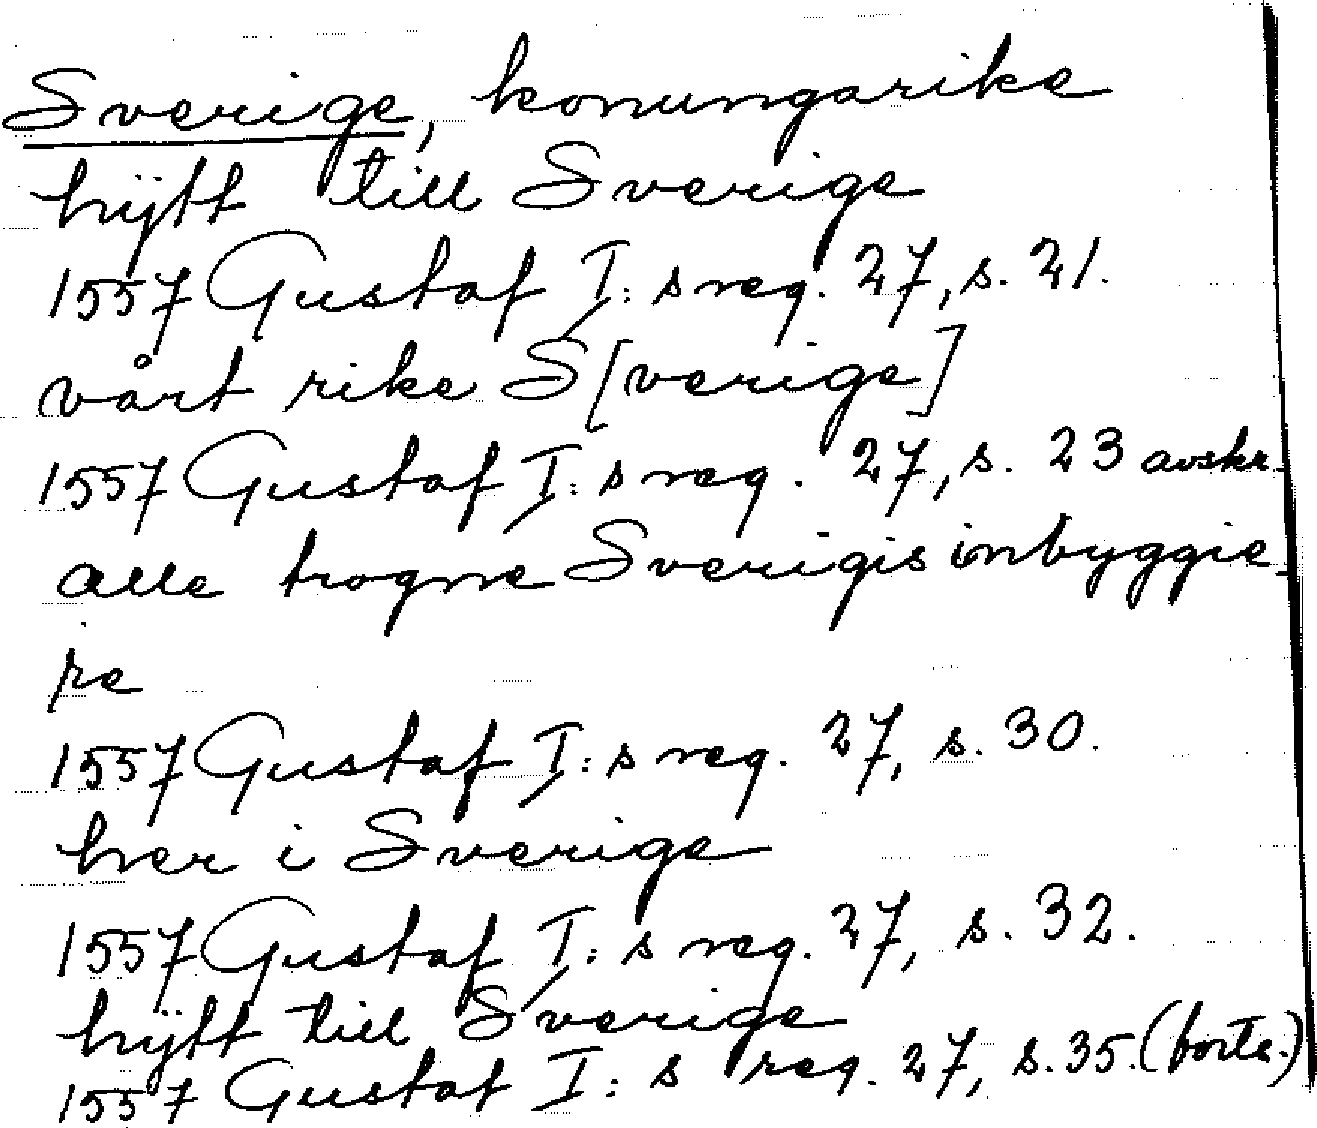 Sverige, konungarike
hijtt till Sverige
1557 Gustaf I: s reg. 27, s. 21.
vårt rike S[verige]
1557 Gustaf I: s reg. 27, s. 23 avskr.
alle trogne Sverigis inbyggie-
re
1557 Gustaf I: s reg. 27, s. 30.
her i Sverige
1557 Gustaf I: s reg. 27, s. 32.
hijtt till Sverige
1557 Gustaf I: s reg. 27, s. 35. (forts.)